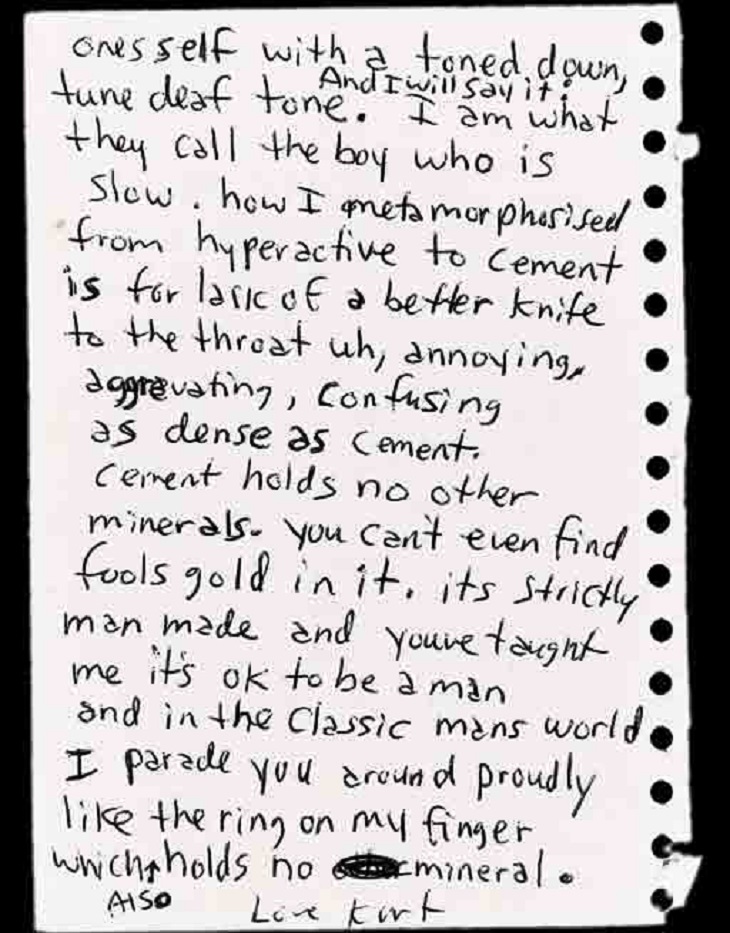 ones self with a toned down,
tune deaf tone. And I will say it! I am what
they call the boy who is
slow. how I metamorphosised
from hyperactive to cement
is for lack of a better knife
to the throat uh, annoying,
aggrevating, confusing
as dense as cement.
cement holds no other
minerals. you can't even find
fools gold in it. its strictly
man made and youve taught
me it's ok to be a man
and in the classic mans world
I parade you around proudly
like the ring on my finger
which Also holds no mineral.
Love Kurt